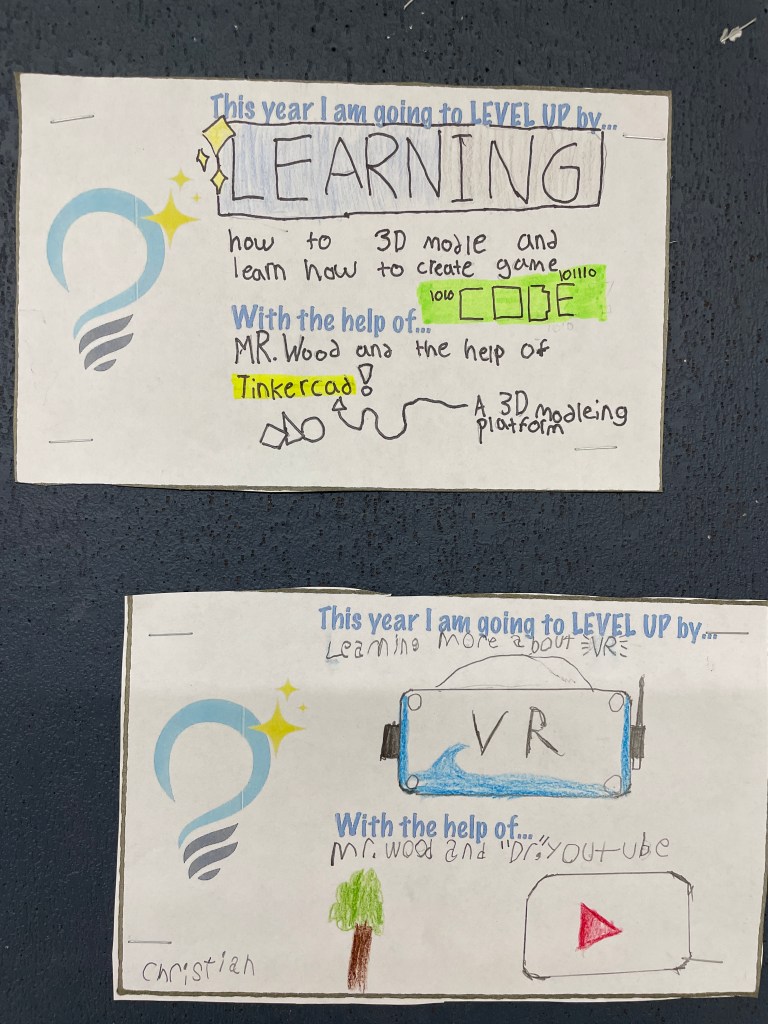 This year I am going to LEVEL UP by...
LEARNING
how to 3D modle and
learn how to create game
1010 CODE 101110
With the help of...
MR. Wood and the help of
Tinkercad!
A 3D modeleing
platform
This year I am going to LEVEL UP by...
Learning more about VR
VR
With the help of...
Mr. Wood and "Dr." Youtube
Christian